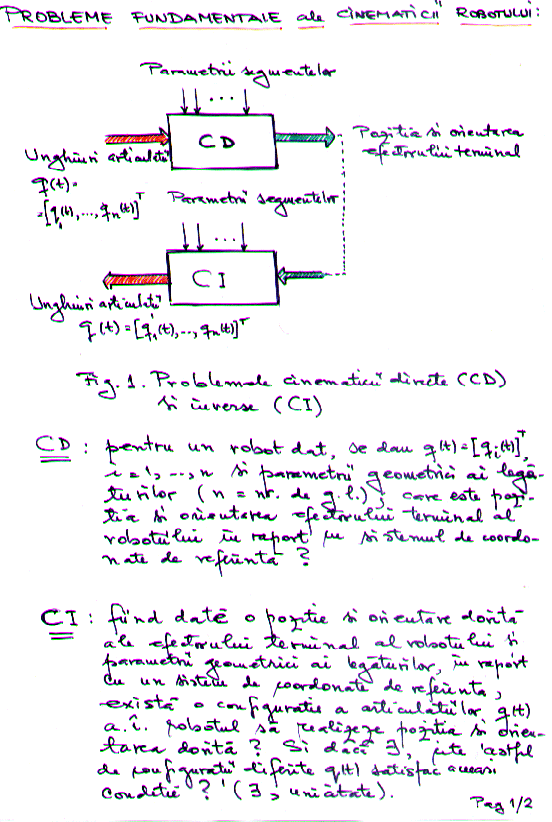 PROBLEME FUNDAMENTALE ale CINEMATICII ROBOTULUI:
Parametrii segmentelor
... 
CD
Unghiuri articulații
q(t)=
=[q1(t),...,qn(t)]T
Poziția și orientarea
efectorului terminal
Parametrii segmentelor
...
CI
Unghiuri articulații
q(t)=[q1(t),...,qn(t)]T
Fig. 1. Problemele cinematicii directe (CD)
și inverse (CI)
CD : pentru un robot dat, se dau q(t)=[qi(t)]T,
i=1,...,n și parametrii geometrici ai legă-
turilor (n = nr. de g.l.); care este pozi-
ția și orientarea efectorului terminal al
robotului în raport cu sistemul de coordo-
nate de referință ?
CI : fiind date o poziție și orientare dorită
ale efectorului terminal al robotului și
parametrii geometrici ai legăturilor, în raport
cu un sistem de coordonate de referință,
există o configurație a articulațiilor q(t)
a.î. robotul să realizeze poziția și orien-
tarea dorită ? Și dacă ∃, câte astfel
de configurații diferite q(t) satisfac aceeași
condiție ? (∃, unicitate).
Pag 1/2